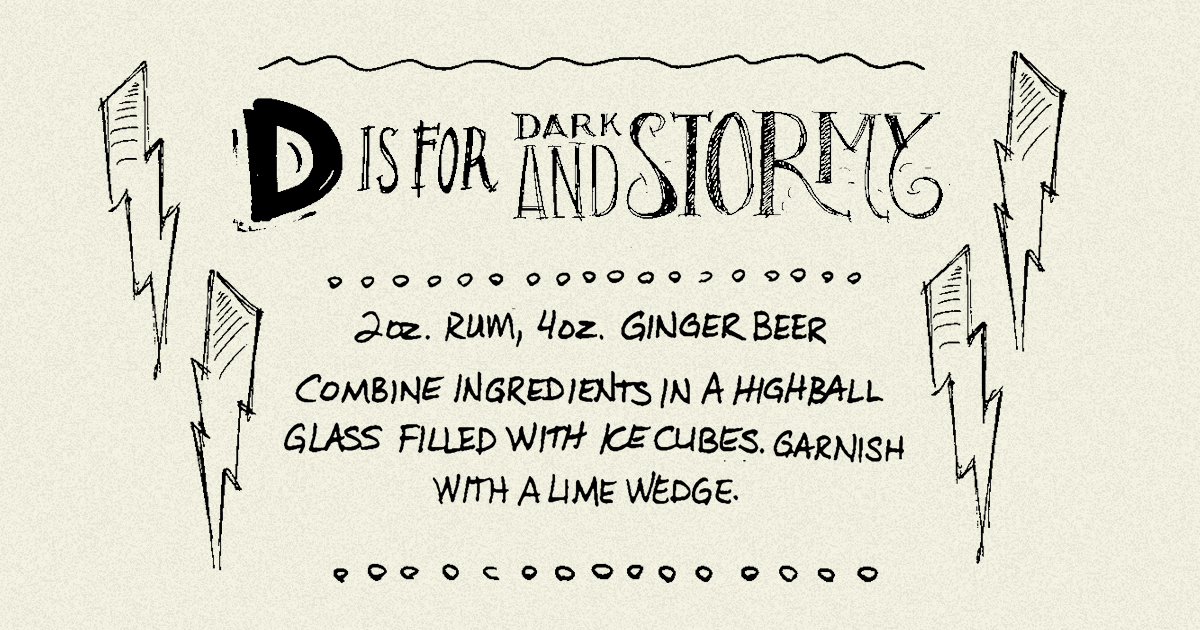 D IS FOR DARK AND STORMY
2oz. RUM, 4oz. GINGER BEER
COMBINE INGREDIENTS IN A HIGHBALL
GLASS FILLED WITH ICE CUBES. GARNISH
WITH A LIME WEDGE.